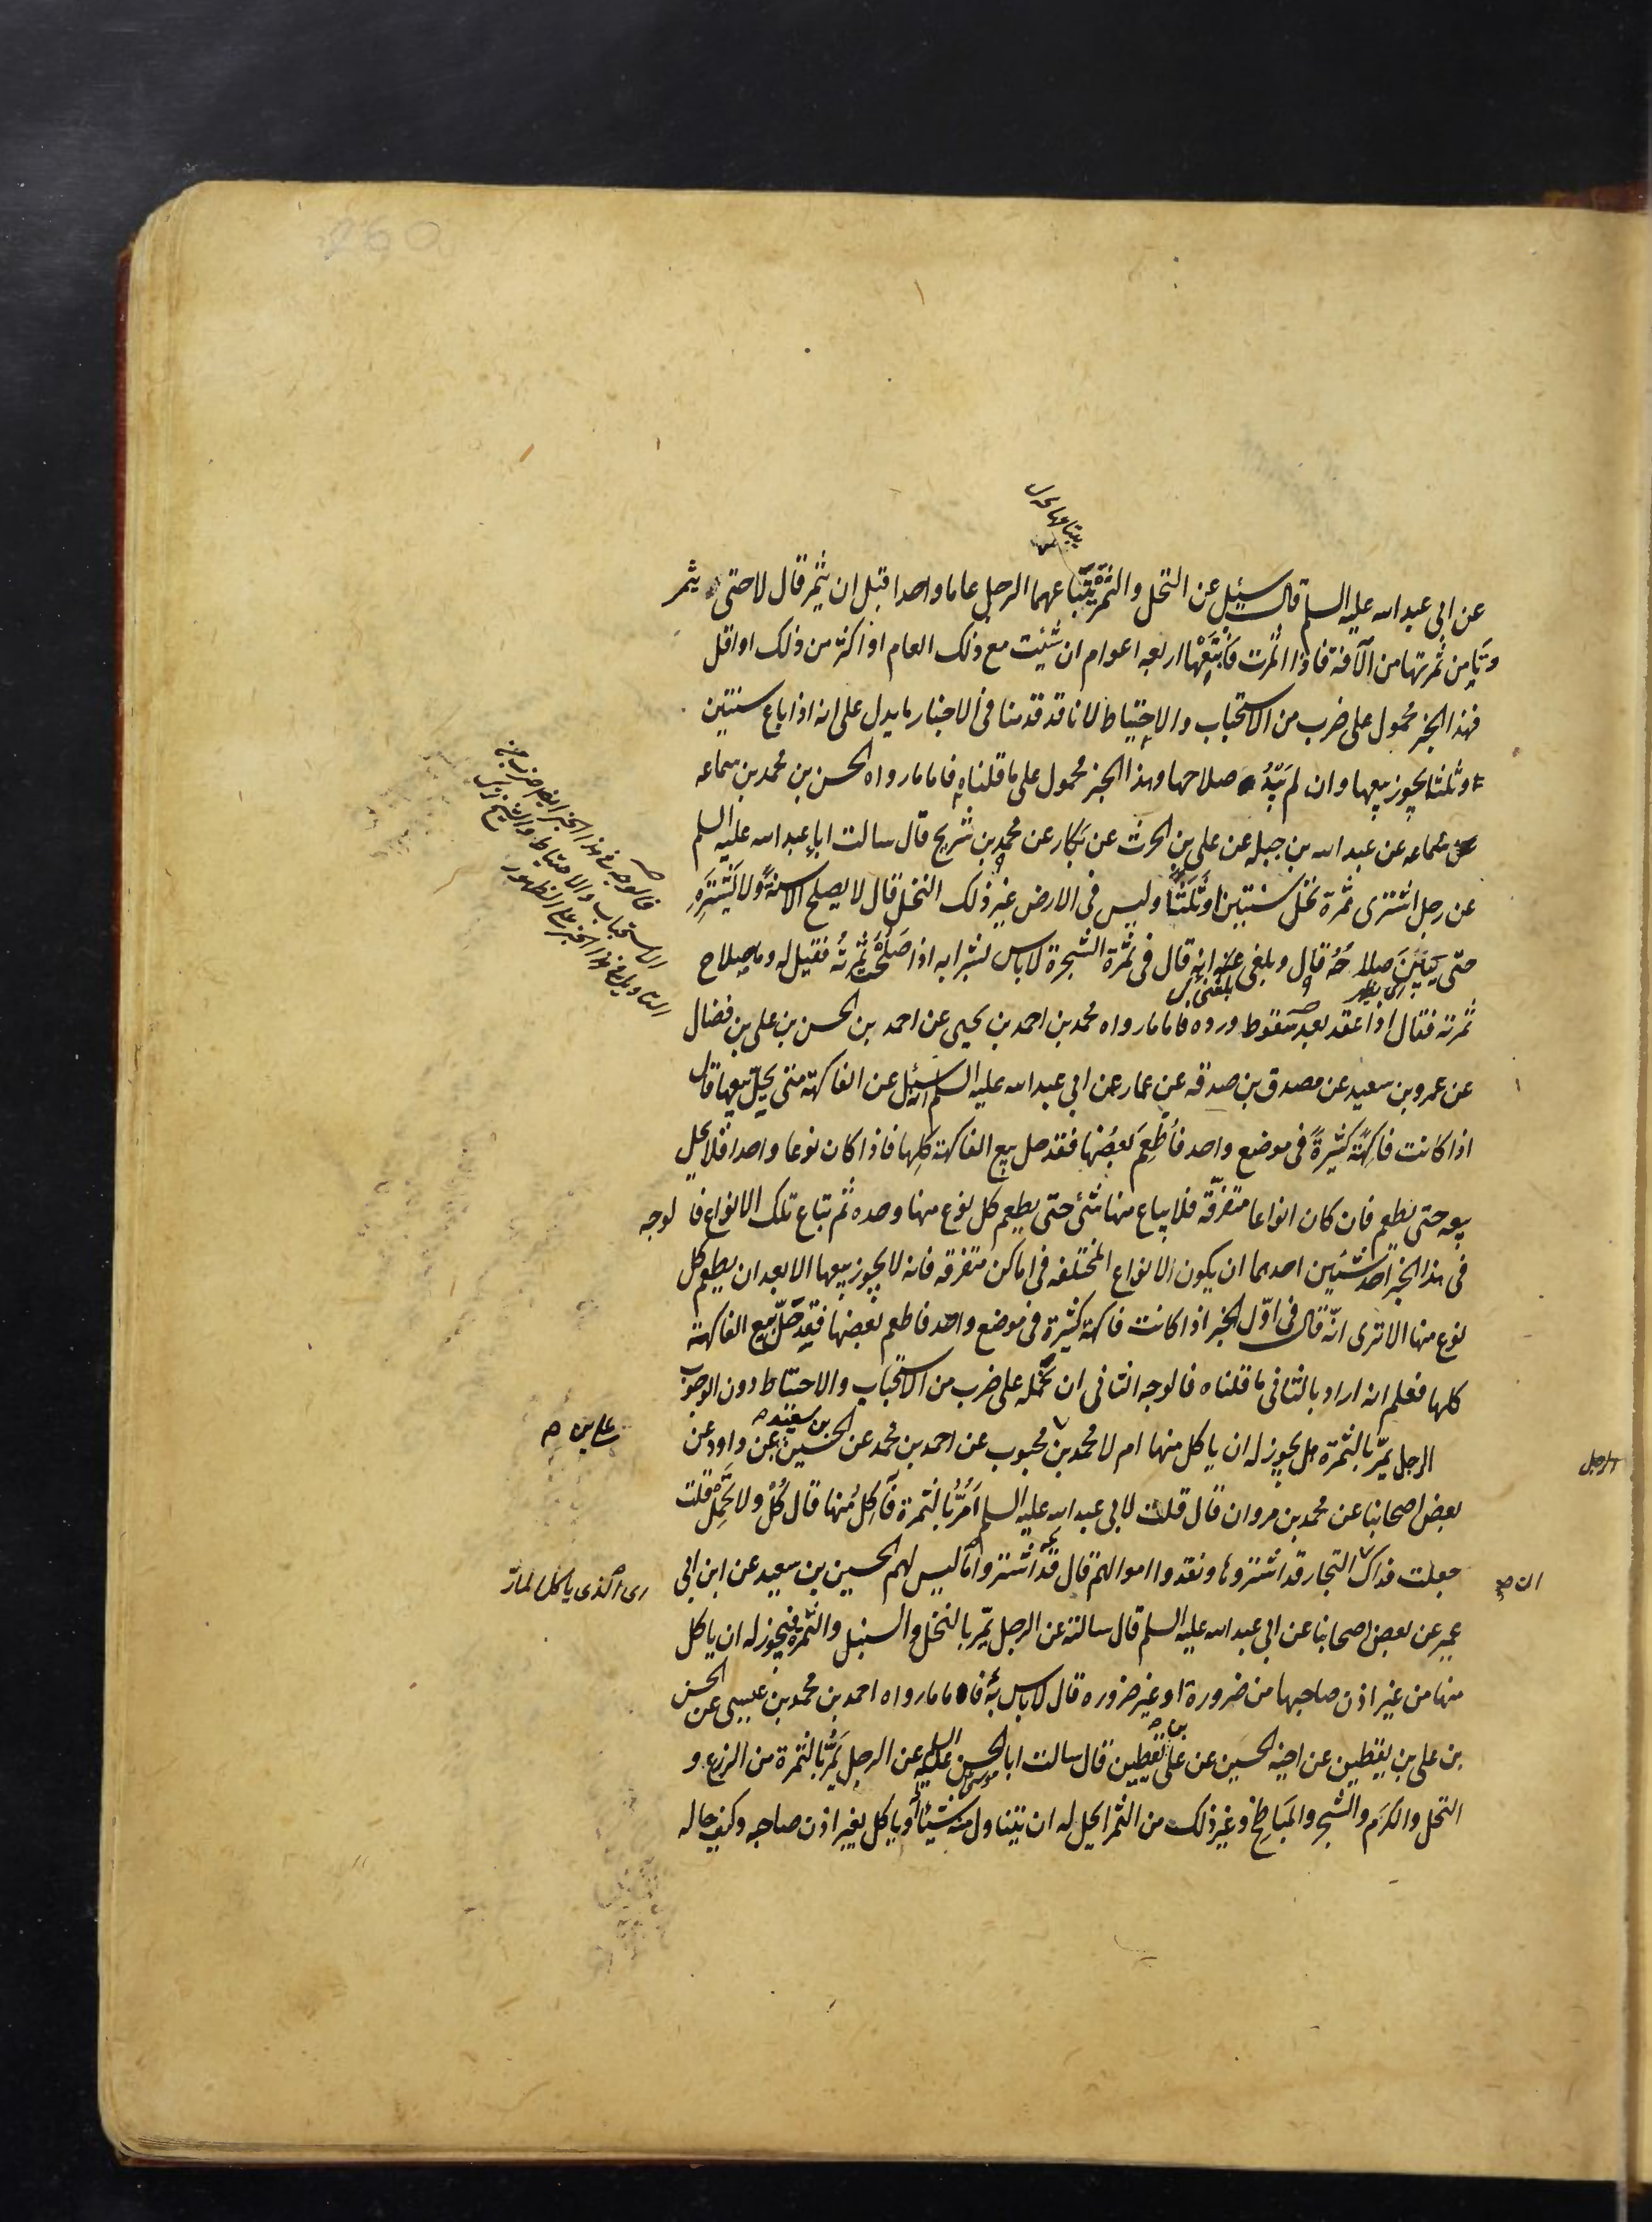 يبتاعهما
عن ابى عبد الله عليه السلم قال سئل عن النخل والثمرة يبتاعهما الرجل عاما واحدا قبل ان يثمر قال لا حتى يثمر
وتامن ثمرتها من الآفة فاذا اثمرت فابتعها اربعه اعوام ان شئت مع ذلك العام او اكثر من ذلك او اقل
فهذا الخبر محمول على ضرب من الاستحباب والاحتياط لانا قد قدمنا فى الاخبار ما يدل على انه اذا باع سنتين
او ثلثا يجوز بيعها وان لم يبد صلاحها وهذا الخبر محمول على ما قلناه فاما ما رواه الحسن بن محمد بن سماعه
عن عبد الله بن جبله عن على بن الحرث عن بكار عن محمد بن شريح قال سالت ابا عبد الله عليه السلم
عن رجل اشترى ثمرة نخل سنتين او ثلثا وليس فى الارض غير ذلك النخل قال لا يصلح الا سنة ولا يشتره
حتى يبين صلاحه قال وبلغنى عنه انه قال فى ثمرة الشجرة لاباس بشرايه اذا صلحت ثمرته فقيل له وما صلاح
بلغنى
ثمرته فقال اذا عقد بعد سقوط ورده فاما ما رواه محمد بن احمد بن يحيى عن احمد بن الحسن بن على بن فضال
عن عمرو بن سعيد عن مصدق بن صدقه عن عمار عن ابى عبد الله عليه السلم انه سئل عن الفاكهة متى يحل بيعها قال
اذا كانت فاكهة كثيرة فى موضع واحد فاطعم بعضها فقد حل بيع الفاكهة كلها فاذا كان نوعا واحدا فلا يحل
بيعه حتى يطعم فان كان انواعا متفرقة فلا يباع منها شئ حتى يطعم كل نوع منها وحده ثم تباع تلك الانواع فالوجه
فى هذا الخبر احد شيئين احدهما ان يكون الانواع المختلفه فى اماكن متفرقه فانه لا يجوز بيعها الا بعد ان يطعم كل
نوع منها الا ترى انه قال فى اول الخبر اذا كانت فاكهة كثيرة فى موضع واحد فاطعم بعضها فقد حل بيع الفاكهة
كلها فعلم انه اراد بالثانى ما قلناه فالوجه الثانى ان نحمله على ضرب من الاستحباب والاحتياط دون الوجوب
الرجل يمر بالثمرة هل يجوز له ان ياكل منها ام لا محمد بن محبوب عن احمد بن محمد عن الحسين بن سعيد عن داود عن
بعض اصحابنا عن محمد بن مروان قال قلت لابى عبد الله عليه السلم امر بالثمرة فآكل منها قال كل ولا تحمل قلت
جعلت فداك التجار قد اشتروها ونقدوا اموالهم قال قد اشتروا ما ليس لهم الحسين بن سعيد عن ابن ابى
عمير عن بعض اصحابنا عن ابى عبد الله عليه السلم قال سالته عن الرجل يمر بالنخل والسنبل والثمرة فيجوز له ان ياكل
منها من غير اذن صاحبها من ضرورة او غير ضروره قال لاباس به فاما ما رواه احمد بن محمد بن عيسى عن الحسن
بن على بن يقطين عن اخيه الحسين عن على بن يقطين قال سالت ابا الحسن عليه السلم عن الرجل يمر بالثمرة من الزرع و
النخل والكرم والشجر والمباطخ وغير ذلك من الثمر ايحل له ان يتناول منه شيئا او ياكل بغير اذن صاحبه وكيف حاله
فالوجه فى هذا الخبر ايضا ضرب من
الاستحباب والاحتياط
على بن
اى الذى ياكل المار
الرجل